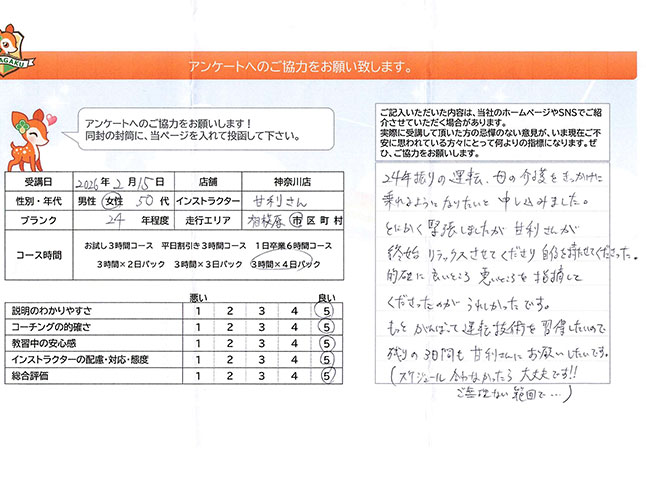 AGAKU
アンケートへのご協力をお願い致します。
アンケートへのご協力をお願いします！
同封の封筒に、当ページを入れて投函して下さい。
受講日 2026年 2月 15日 店舗 神奈川店
性別・年代 男性 女性 50代 インストラクター 甘利さん
ブランク 24 年程度 走行エリア 相模原 市区町村
コース時間
お試し3時間コース 平日割引き3時間コース 1日卒業6時間コース
3時間×2日パック 3時間×3日パック 3時間×4日パック
悪い 良い
説明のわかりやすさ 1 2 3 4 5
コーチングの的確さ 1 2 3 4 5
教習中の安心感 1 2 3 4 5
インストラクターの配慮・対応・態度 1 2 3 4 5
総合評価 1 2 3 4 5
ご記入いただいた内容は、当社のホームページやSNSでご紹
介させていただく場合があります。
実際に受講して頂いた方の忌憚のない意見が、いま現在ご不
安に思われている方々にとって何よりの指標になります。ぜ
ひ、ご協力をお願いします。
24年振りの運転、母の介護をきっかけに
乗れるようになりたいと申し込みました。
とにかく緊張しましたが甘利さんが
終始リラックスさせてくださり自信を持たせてくださった。
的確に良いところ悪いところを指摘して
くださったのがうれしかったです。
もっとがんばって運転技術を習得したいので
残りの3日間も甘利さんにお願いしたいです。
(スケジュール合わなかったら大丈夫です!!
ご無理ない範囲で…)